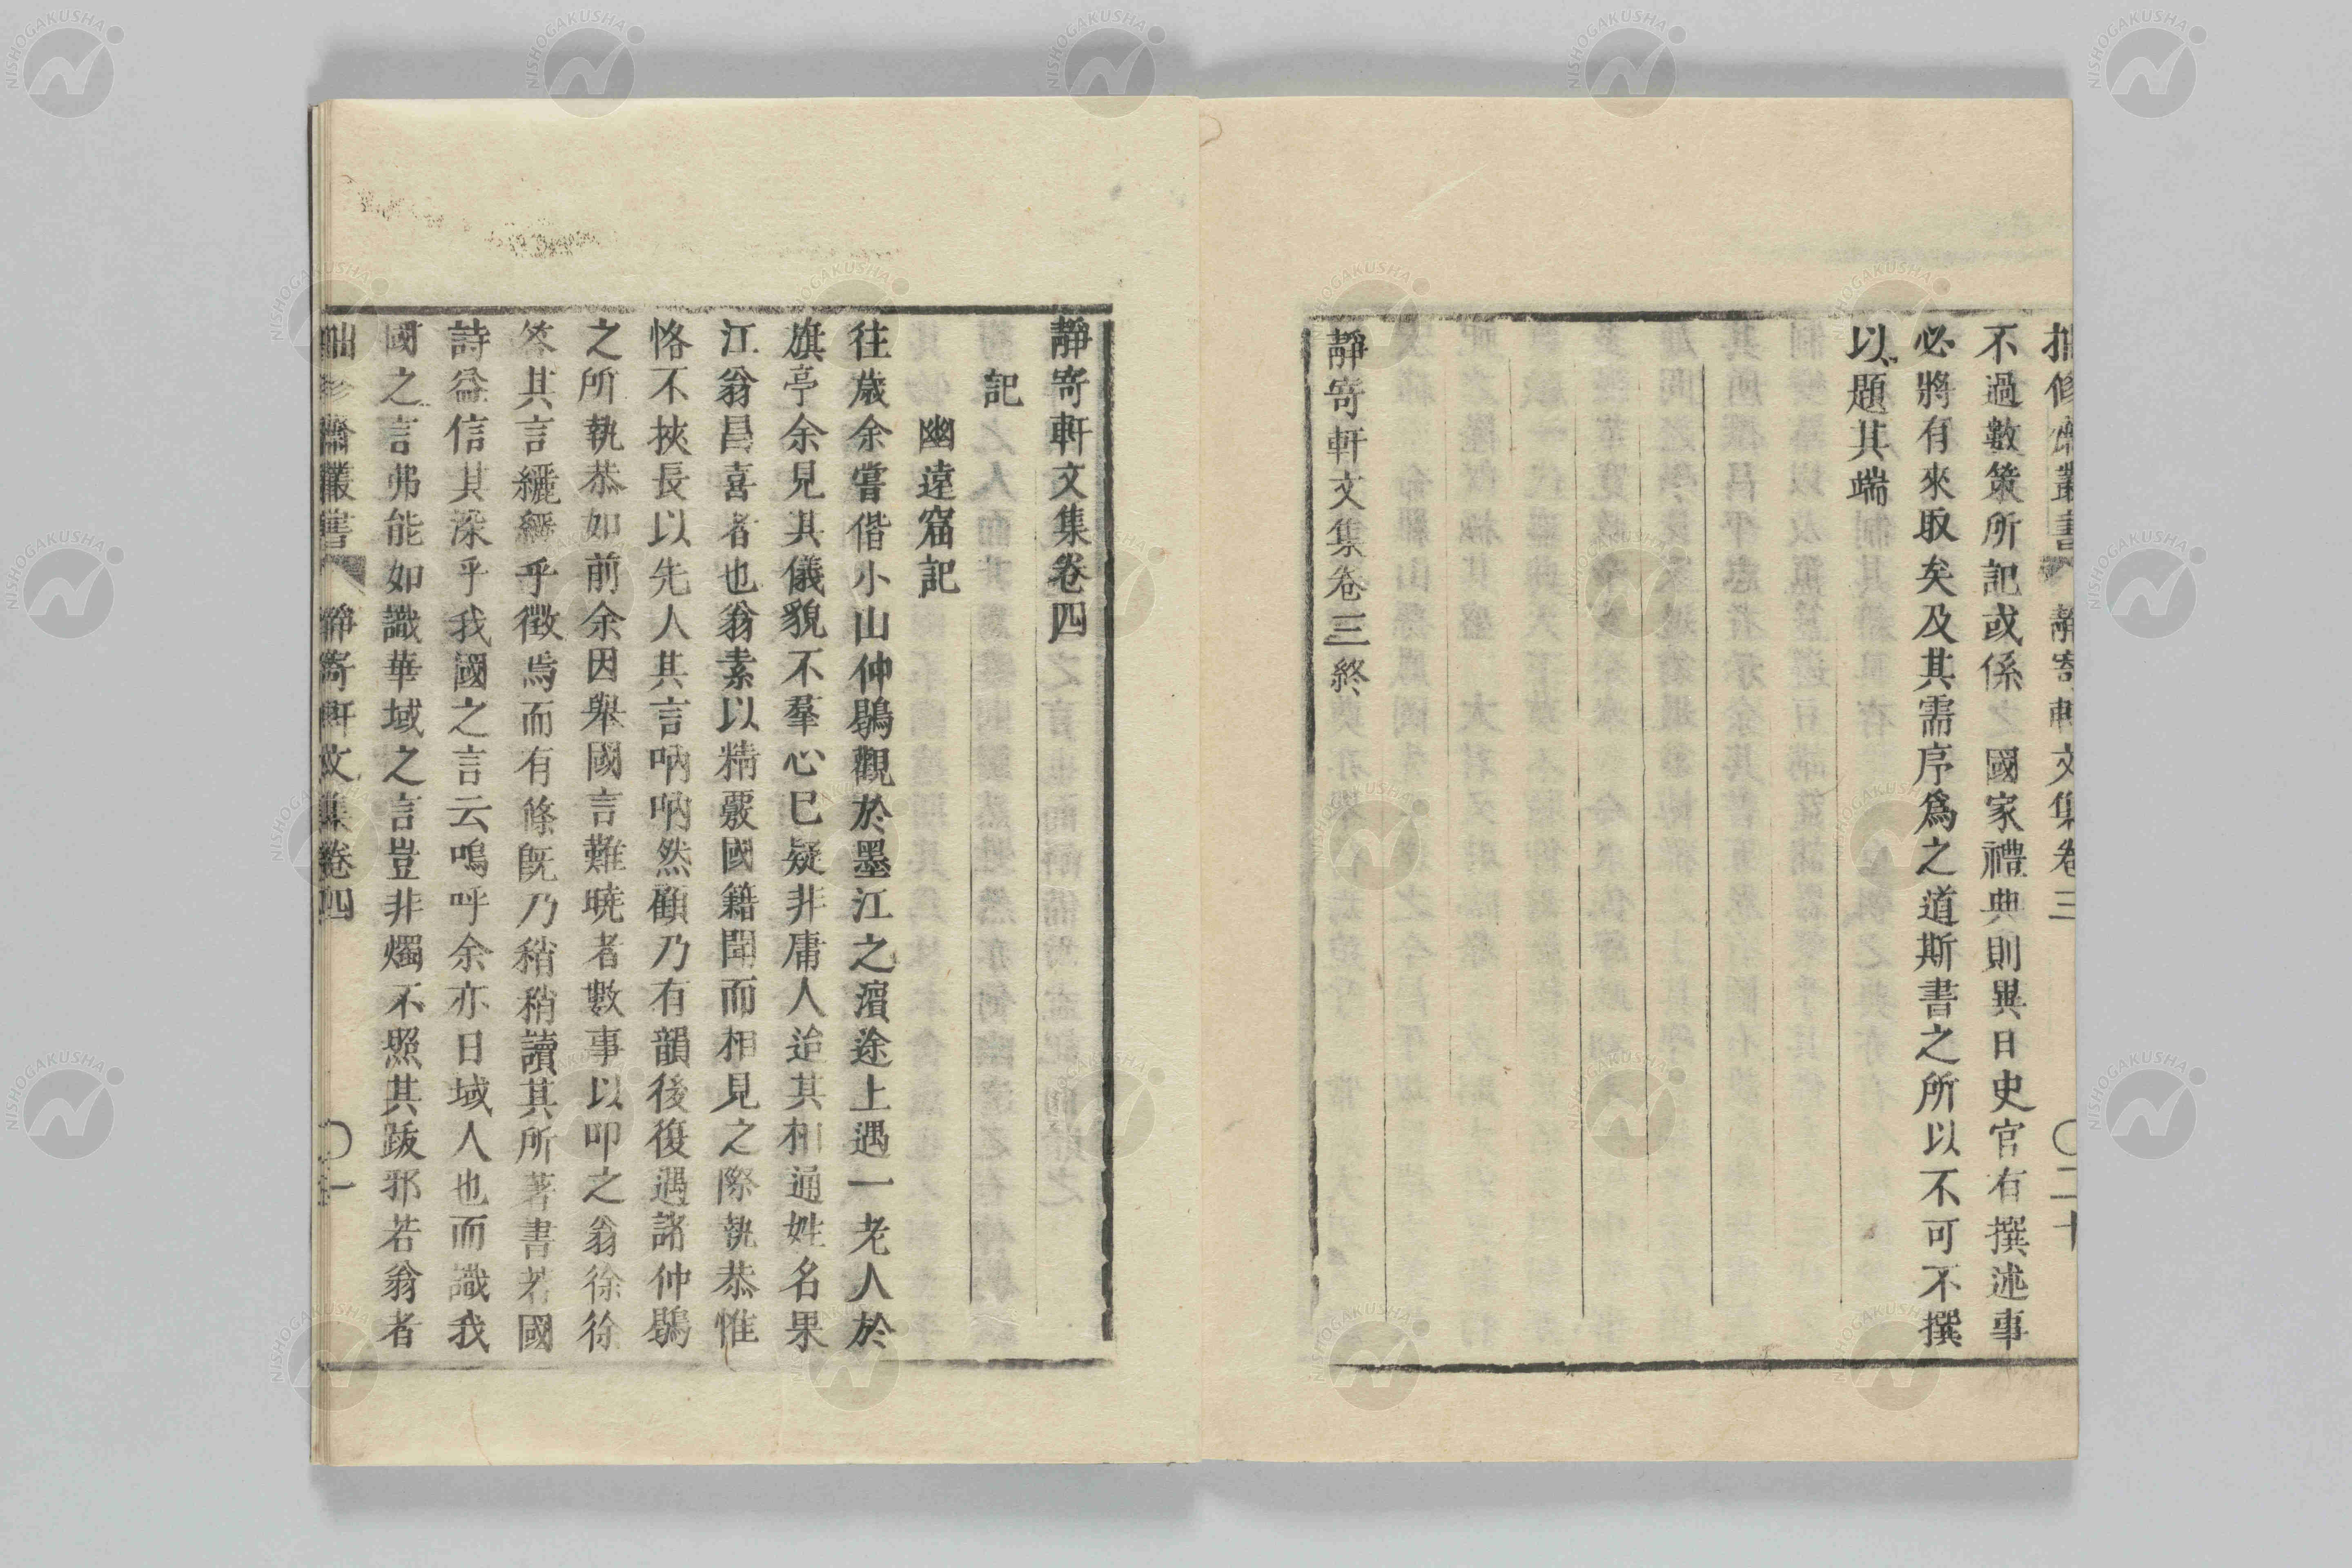 不過數策所記或係之國家禮典則異日史官有撰述事
必將有來取矣及其需序爲之道斯書之所以不可不撰
以題其端
靜寄軒文集卷三終
靜寄軒文集卷四
記
幽遠窟記
往歲余嘗偕小山仲鵾觀於墨江之濱途上遇一老人於
旗亭余見其儀貌不羣心巳疑非庸人迨其相通姓名果
江翁昌喜者也翁素以精覈國籍聞而相見之際執恭惟
恪不挾長以先人其言吶吶然顧乃有韻後復遇諸仲鵾
之所執恭如前余因舉國言難曉者數事以叩之翁徐徐
答其言纚纚乎徵焉而有條既乃稍稍讀其所著書若國
詩益信其深乎我國之言云嗚呼余亦日域人也而識我
國之言弗能如識華域之言豈非燭不照其跋邪若翁者
叢書 靜寄軒文集卷四 〇一
叢書 靜寄軒文集卷三 〇二十
NISHOGAKUSHA